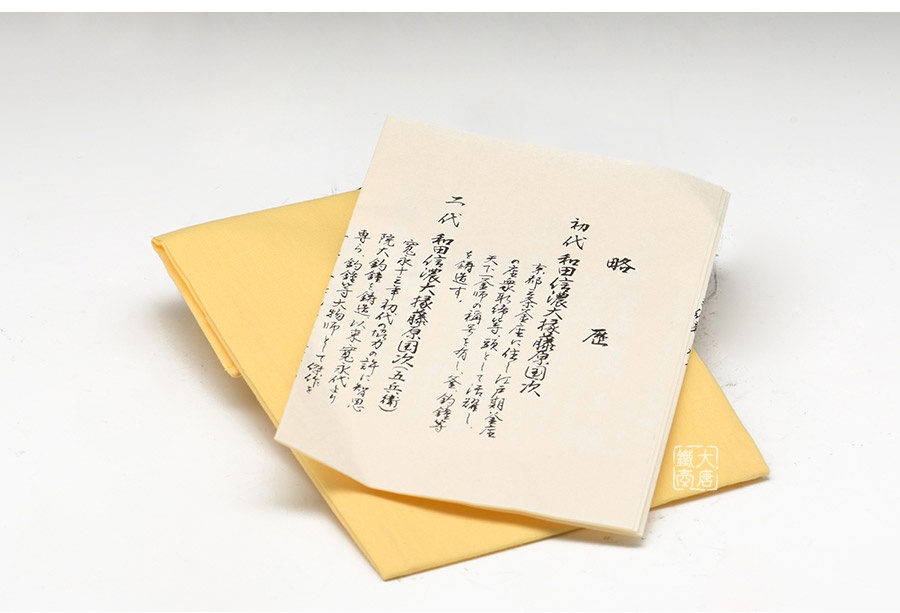 略歴
初代 和田信濃大掾藤原国次
京都三条釜座に住し江戸期釜座
の座衆取締等頭として活躍し、
天下一釜師の称号を有し、釜、釣鐘等
を鋳造す。
二代 和田信濃大掾藤原国次(五兵衛)
寛永十三年初代の協力の許に智恩
院大釣鐘を鋳造、以来寛永代より
専ら、釣鐘等大物師として傑作を
大唐
鐵壺